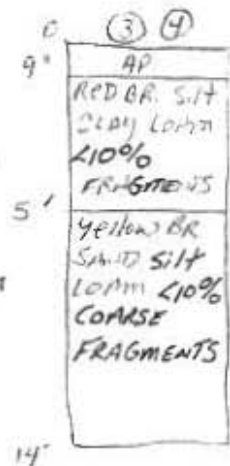 0 ③ ④
9" AP
RED BR. Silt
CLAY LOAM
<10%
FRAGMENTS
5'
Yellow BR
SAND Silt
LOAM <10%
COARSE
FRAGMENTS
14'